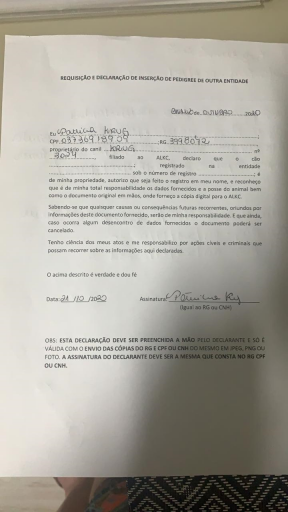 REQUISIÇÃO E DECLARAÇÃO DE INSERÇÃO DE PEDIGREE DE OUTRA ENTIDADE
OUTUBRO 2020
Eu Patricia KRUG
CPF RG
proprietário do canil KRUG nº
filiado ao ALKC, declaro que o cão
registrado na entidade
sob o número de registro ; é
de minha propriedade, autorizo que seja feito o registro em meu nome, e reconheço
que é da minha total responsabilidade os dados fornecidos e a posse do animal bem
como o documento original em mãos, onde forneço a cópia digital para o ALKC.
Sabendo-se que quaisquer causas ou consequências futuras recorrentes, oriundos por
informações deste documento fornecido, serão de minha responsabilidade. E que ainda,
caso ocorra algum desencontro de dados fornecidos o documento poderá ser
cancelado.
Tenho ciência dos meus atos e me responsabilizo por ações cíveis e criminais que
possam recorrer sobre as informações aqui declaradas.
O acima descrito é verdade e dou fé
Data: 21 /10 /2020 Assinatura:
(Igual ao RG ou CNH)
OBS: ESTA DECLARAÇÃO DEVE SER PREENCHIDA A MÃO PELO DECLARANTE E SÓ É
VÁLIDA COM O ENVIO DAS CÓPIAS DO RG E CPF OU CNH DO MESMO EM JPEG, PNG OU
FOTO. A ASSINATURA DO DECLARANTE DEVE SER A MESMA QUE CONSTA NO RG CPF
OU CNH.